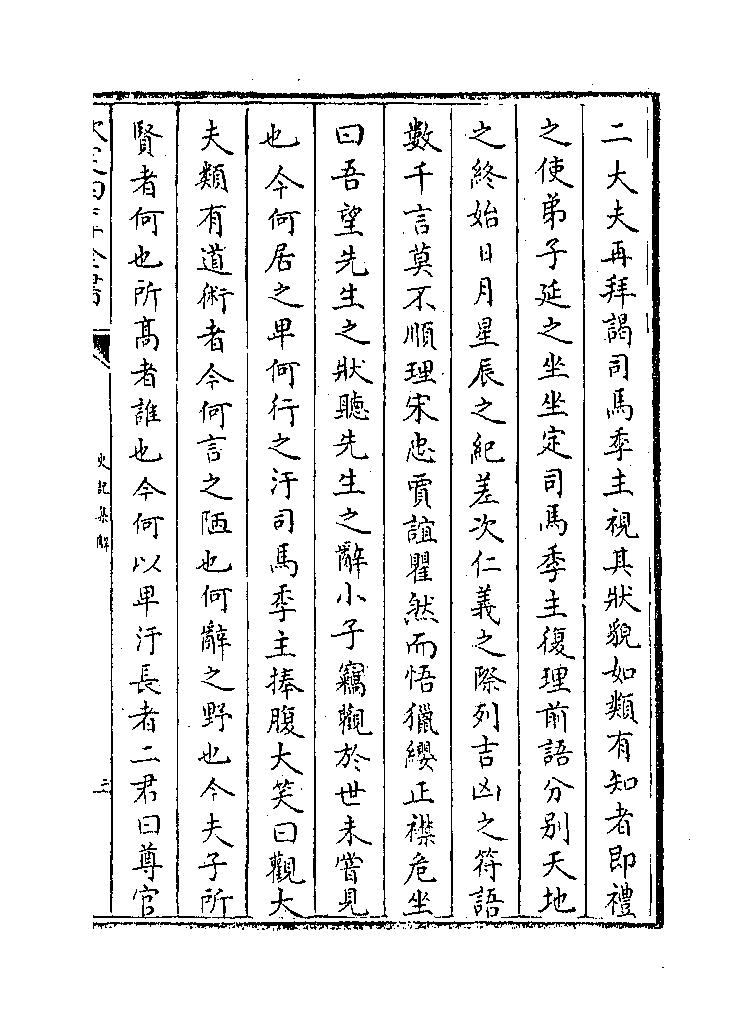 二大夫再拜謁司馬季主視其狀貌如類有知者即禮
之使弟子延之坐坐定司馬季主復理前語分别天地
之終始日月星辰之紀差次仁義之際列吉凶之符語
數千言莫不順理宋忠賈誼瞿然而悟獵纓正襟危坐
曰吾望先生之狀聽先生之辭小子竊觀於世未嘗見
也今何居之卑何行之汙司馬季主捧腹大笑曰觀大
夫類有道術者今何言之陋也何辭之野也今夫子所
賢者何也所髙者誰也今何以卑汙長者二君曰尊官
史記集解
三